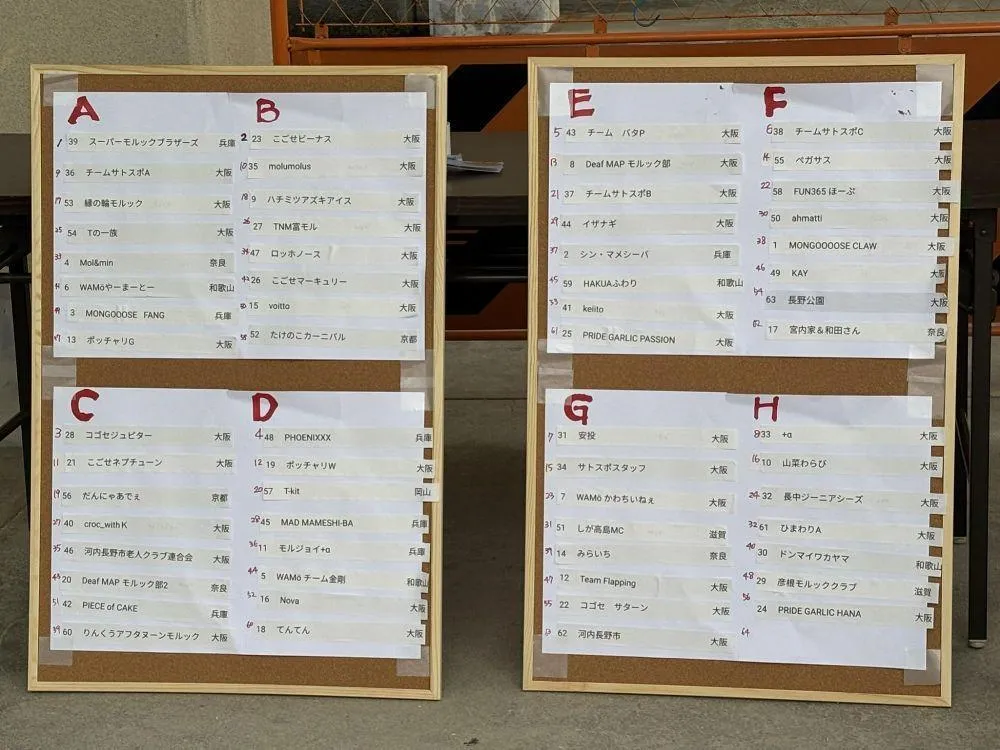 A
1 39 スーパーモルックブラザーズ 兵庫
9 36 チームサトスポA 大阪
17 53 縁の輪モルック 大阪
25 54 Tの一族 大阪
33 4 Mol&min 奈良
41 6 WAMöやーまーとー 和歌山
49 3 MONGOOOSE FANG 兵庫
57 13 ボッチャリG 大阪
B
2 23 こごせビーナス 大阪
10 35 molumolus 大阪
18 9 ハチミツアズキアイス 大阪
26 27 TNM富モル 大阪
34 47 ロッホノース 大阪
42 26 こごせマーキュリー 大阪
50 15 voitto 大阪
58 52 たけのこカーニバル 京都
C
3 28 コゴセジュピター 大阪
11 21 こごせネプチューン 大阪
19 56 だんにゃあでぇ 京都
27 40 croc_with K 大阪
35 46 河内長野市老人クラブ連合会 大阪
43 20 Deaf MAP モルック部2 奈良
51 42 PIECE of CAKE 兵庫
59 60 りんくうアフタヌーンモルック 大阪
D
4 48 PHOENIXXX 兵庫
12 19 ボッチャリW 大阪
20 57 T-kit 岡山
28 45 MAD MAMESHI-BA 兵庫
36 11 モルジョイ+α 兵庫
44 5 WAMö チーム金剛 和歌山
52 16 Nova 大阪
60 18 てんてん 大阪
E
5 43 チーム バタP 大阪
13 8 Deaf MAP モルック部 大阪
21 37 チームサトスポB 大阪
29 44 イザナギ 大阪
37 2 シン・マメシーバ 兵庫
45 59 HAKUAふわり 和歌山
53 41 keiito 大阪
61 25 PRIDE GARLIC PASSION 大阪
F
6 38 チームサトスポC 大阪
14 55 ペガサス 大阪
22 58 FUN365 ほーぷ 大阪
30 50 ahmatti 大阪
38 1 MONGOOOOSE CLAW 大阪
46 49 KAY 大阪
54 63 長野公園 大阪
62 17 宮内家＆和田さん 奈良
G
7 31 安投 大阪
15 34 サトスポスタッフ 大阪
23 7 WAMö かわちいねぇ 大阪
31 51 しが高島MC 滋賀
39 14 みらいち 奈良
47 12 Team Flapping 大阪
55 22 コゴセ サターン 大阪
63 62 河内長野市 大阪
H
8 33 +α 大阪
16 10 山菜わらび 大阪
24 32 長中ジーニアシーズ 大阪
32 61 ひまわりA 大阪
40 30 ドンマイワカヤマ 和歌山
48 29 彦根モルッククラブ 滋賀
56 24 PRIDE GARLIC HANA 大阪
64